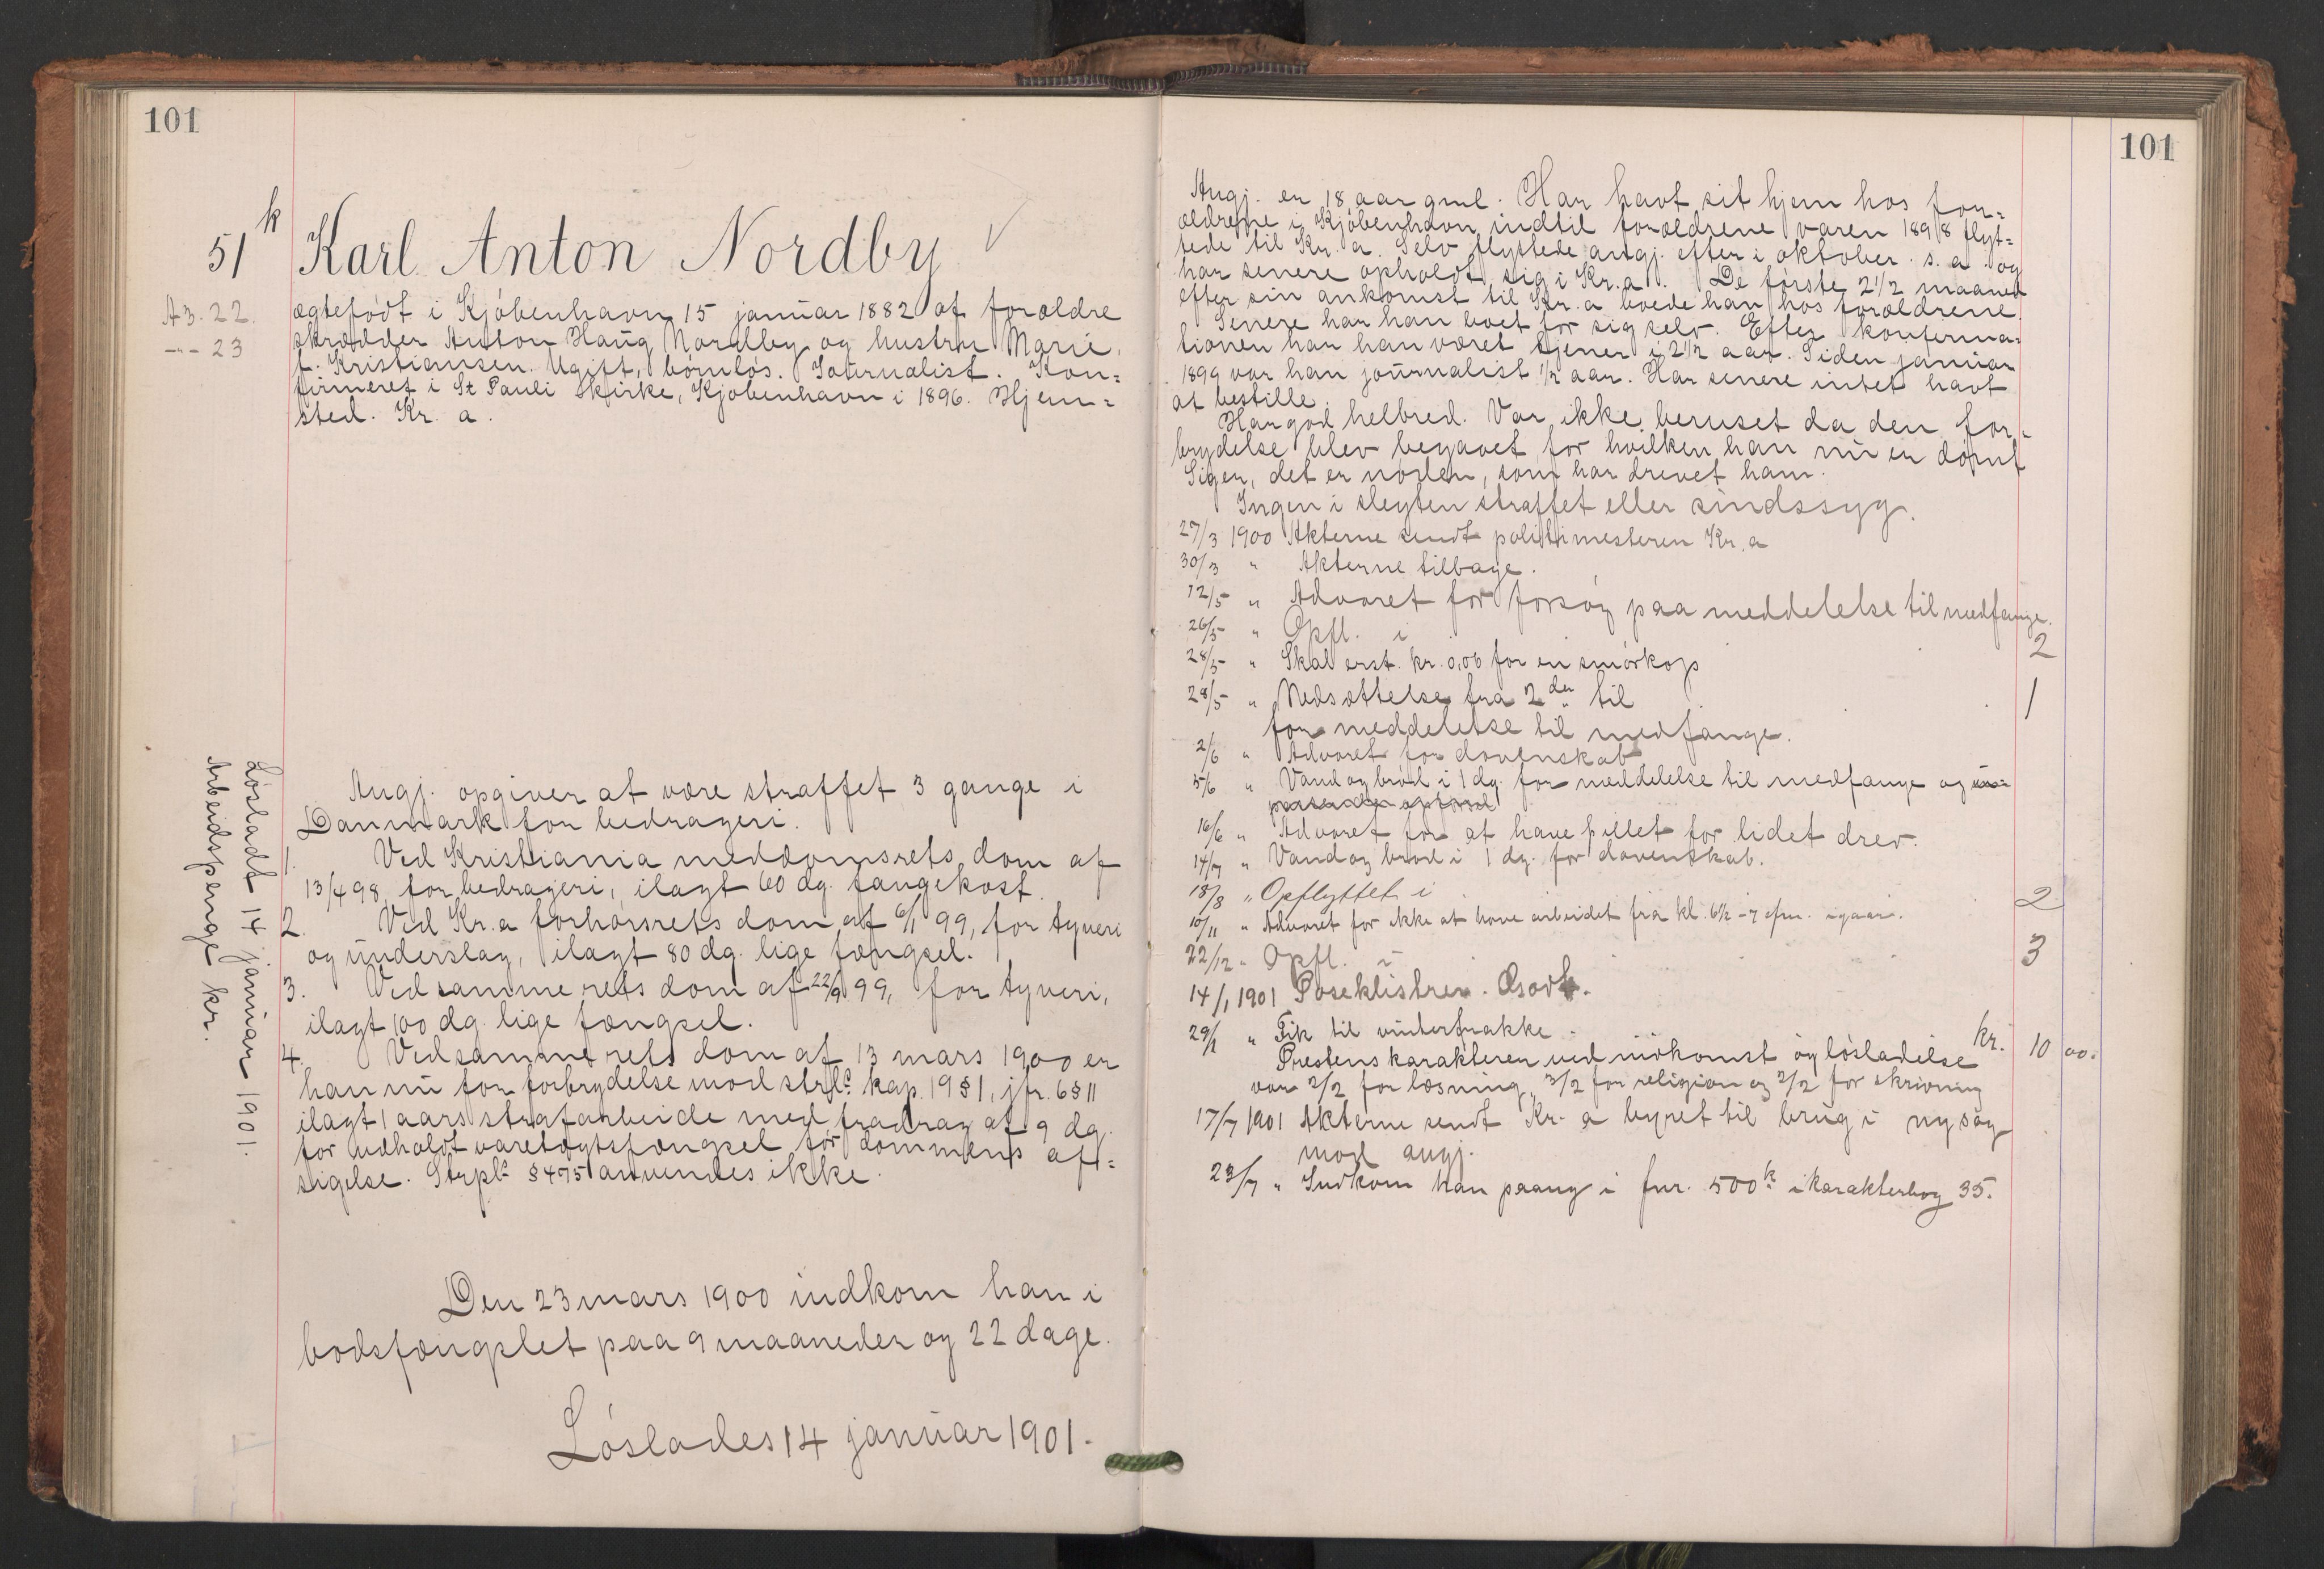 101
51 k
Karl Anton Nordby
A3. 22.
-"- 23
ægtefödt i Kjöbenhavn 15 januar 1882 af forældre
skrædder Anton Haug Nordby og hustru Marie
f. Kristiansen. Ugift, börnlös. Journalist. Kon=
firmeret i St Pauli kirke, Kjöbenhavn i 1896. Hjem=
sted. Kr. a.
Angj. opgiver at være straffet 3 gange i
Danmark for bedrageri.
1. Ved Kristiania meddomsrets dom af
13/4 98, for bedrageri, ilagt 60 dg. fangekost.
2. Ved Kr. a forhörsrets dom af 6/1 99, for tyveri
og underslag, ilagt 80 dg. lige fængsel.
3. Ved samme rets dom af 22/9 99, for tyveri,
ilagt 100 dg. lige fængsel.
4. Ved samme rets dom af 13 mars 1900 er
han nu for forbrydelse mod strl. kap. 19 § 1, jfr. 6 § 11
ilagt 1 aars strafarbeide med fradrag af 9 dg.
for udholdt varetægtsfængsel för dommens af=
sigelse. Strpl. § 475 anvendes ikke.
Den 23 mars 1900 indkom han i
bodsfængslet paa 9 maaneder og 22 dage.
Löslades 14 januar 1901.
Lösladt 14 januar 1901.
Arbeidspenge kr.
101
Angj. er 18 aar gml. Har havt sit hjem hos for=
ældrene i Kjöbenhavn indtil forældrene vaaren 1898 flyt=
tede til Kr. a. Selv flyttede angj. efter i oktober s. a. og
har senere opholdt sig i Kr. a. De förste 2 1/2 maaned
efter sin ankomst til Kr. a boede han hos forældrene.
Senere har han boet for sig selv. Efter konferma=
tionen har han været tjener i 2 1/2 aar. Siden januar
1899 var han journalist 1/2 aar. Har senere intet havt
at bestille.
Har god helbred. Var ikke beruset da den for=
brydelse blev begaaet for hvilken han nu er dömt
Siger, det er nöden, som har drevet ham.
Ingen i slegten straffet eller sindssyg.
27/3 1900 Akterne sendt politimesteren Kr. a
30/3 " Akterne tilbage.
12/5 " Advaret for forsög paa meddelelse til medfange.
26/5 " Opfl. i 2
28/5 " Skal erst. kr. 0,06 for en smörkop
28/5 " Nedsættelse fra 2den til 1
for meddelelse til medfange.
2/6 " Advaret for dovenskab
5/6 " Vand og bröd i 1 dg. for meddelelse til medfange og u=
passende opförsel
16/6 " Advaret for at have pillet for lidet drev.
14/7 " Vand og bröd i 1 dg. for dovenskab.
18/8 " Opflyttet i 2
10/11 " Advaret for ikke at have arbeidet fra kl. 6 1/2 - 7 efm. igaar.
22/12 " Opfl. i 3
14/1 1901 Poseklistrer.
29/1 " Fik til vinterfrakke kr. 10 00.
Prestens karakterer ved indkomst og lösladelse
var 2/2 for læsning, 3/2 for religion og 2/2 for skrivning
17/7 1901 Akterne sendt Kr. a byret til brug i ny sag
mod angj.
23/7 " Indkom han paany i fnr. 500 k i karakterbog 35.